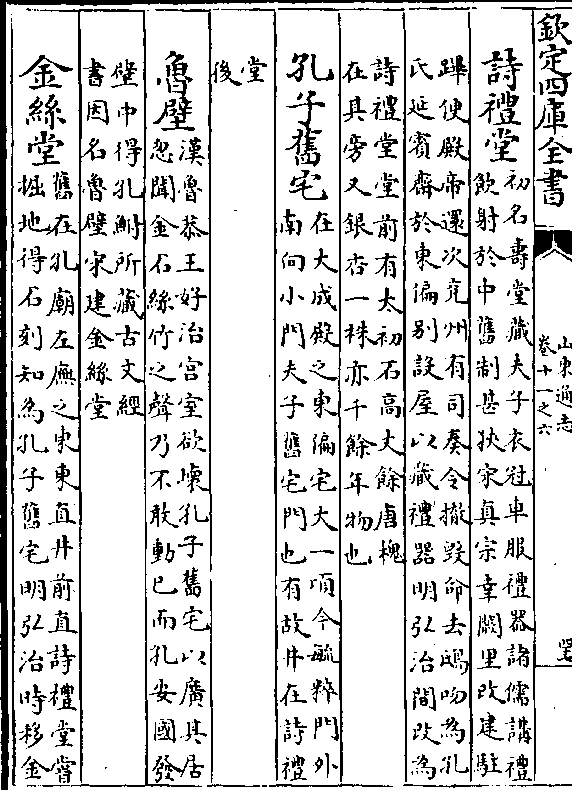 欽定四庫全書
山東通志
卷十一之六
詩禮堂
初名壽堂藏夫子衣冠車服禮器諸儒講禮
飲射於中舊制甚狹宋真宗幸闕里改建駐
蹕便殿帝還次兖州有司奏令撤毁命去鴟吻為孔
氏延賓齋於東偏别設屋以藏禮器明弘治間改為
詩禮堂堂前有太初石高丈餘唐槐
在其旁又銀杏一株亦千餘年物也
孔子舊宅
在大成殿之東偏宅大一頃今毓粹門外
南向小門夫子舊宅門也有故井在詩禮
堂
後
魯壁
漢魯恭王好治宫室欲壞孔子舊宅以廣其居
忽聞金石絲竹之聲乃不敢動已而孔安國發
壁中得孔鮒所藏古文經
書因名魯壁宋建金絲堂
金絲堂
舊在孔廟左廡之東東直井前直詩禮堂嘗
掘地得石刻知為孔子舊宅明弘治時移金